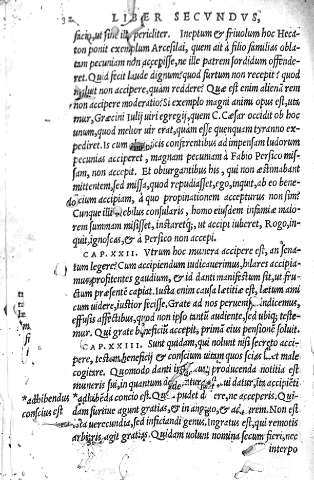 32 LIBER SECVNDVS,
faciā, ut sine illo pericliter. Ineptum & friuolum hoc Heca
ton ponit exemplum Arcesilai, quem ait à filio familias oblatam
pecuniam non accepisse, ne ille patrem sordidum offende-
ret. Quid fecit laude dignum? quod furtum non recepit? quod
maluit non accipere, quàm reddere? Quæ est enim aliena rem
non accipere moderatio? Si exemplo magni animi opus est, uta
mur, Græcini Iulij uiri egregij, quem C. Cæsar occidit ob hoc
unum, quod melior uir erat, quàm esse quenquam tyranno ex-
pediret. Is cum conferentibus ad impensam ludorum
pecunias acciperet, magnam pecuniam à Fabio Persico mis-
sam, non accepit. Et obiurgantibus his, qui non æstimabant
mittentem, sed missa, quod repudiasset, ego, inquit, ab eo bene-
ficium accipiam, à quo propinationem accepturus non sim?
Cunque illi Rebilus consularis, homo eiusdem infamiæ maio-
rem summam misisset, instaretq́;, ut accipi iuberet, Rogo, in-
quit, ignoscas, & à Persico non accepi.
CAP. XXII. Vtrum hoc munera accipere est, an sena
tum legere? Cum accipiendum iudicauerimus, hilares accipia-
mus, profitentes gaudium, & id danti manifestum sit, ut fru-
ctum præsentē capiat. Iusta enim causa lætitiæ est, lætum ami
cum uidere, iustior fecisse. Grate ad nos peruenisse indicemus,
effusis affectibus, quod non ipso tantū audiente, sed ubiq; teste-
mur. Qui grate beneficiū accepit, primā eius pensionē soluit.
CAP. XXIII. Sunt quidam, qui nolunt nisi secreto acci-
pere, testem beneficij & conscium uitant quos scias licet male
cogitare. Quomodo danti in producenda notitia est
muneris sui, in quantum datur, ita accipiēti
*adhibendus *adhibēda concio est. Quod pudet debere, ne acceperis. Qui-
conscius est dam furtiue agunt gratias, & in angulo, & ad aurem. Non est
ista uerecundia, sed inficiandi genus. Ingratus est, qui remotis
arbitris agit gratias. Quidam nolunt nomina secum fieri, nec
interpo